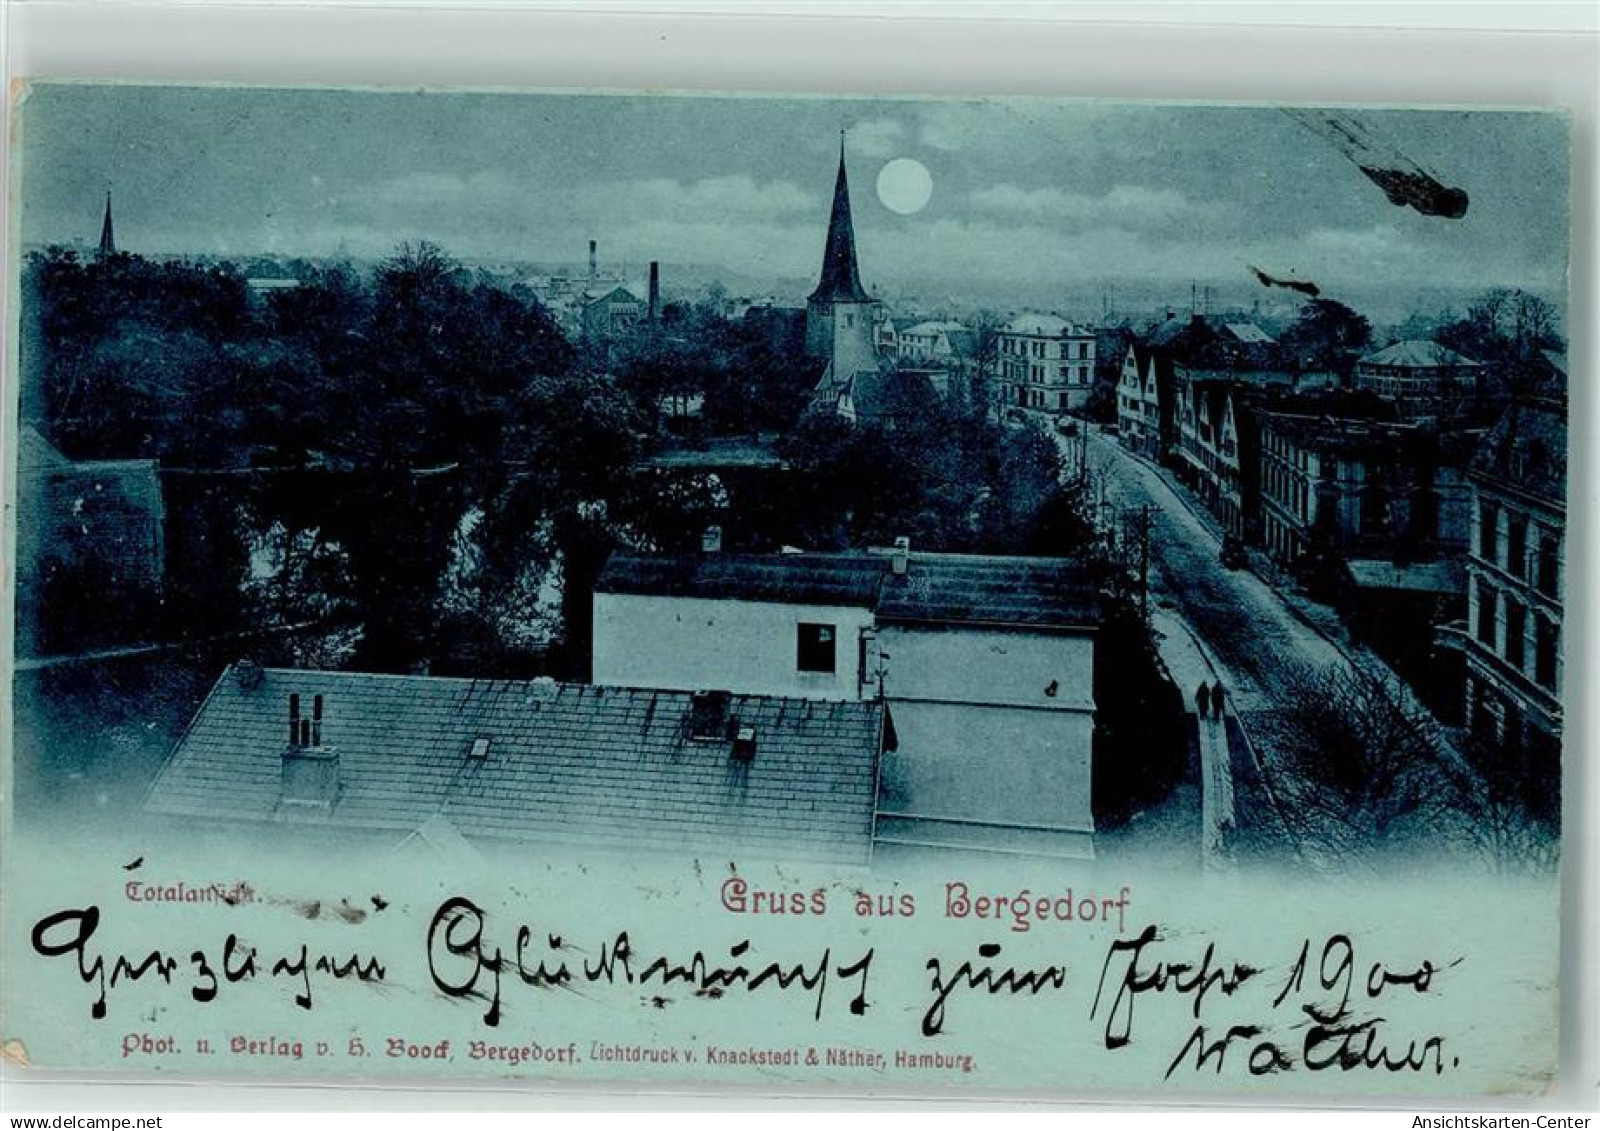 Totalansicht.
Gruss aus Bergedorf
Herzlichen Glückwunsch zum Jahr 1900
Walther.
Phot. u. Verlag v. H. Boock, Bergedorf. Lichtdruck v. Knackstedt & Näther, Hamburg.
delcampe.net
Ansichtskarten-Center